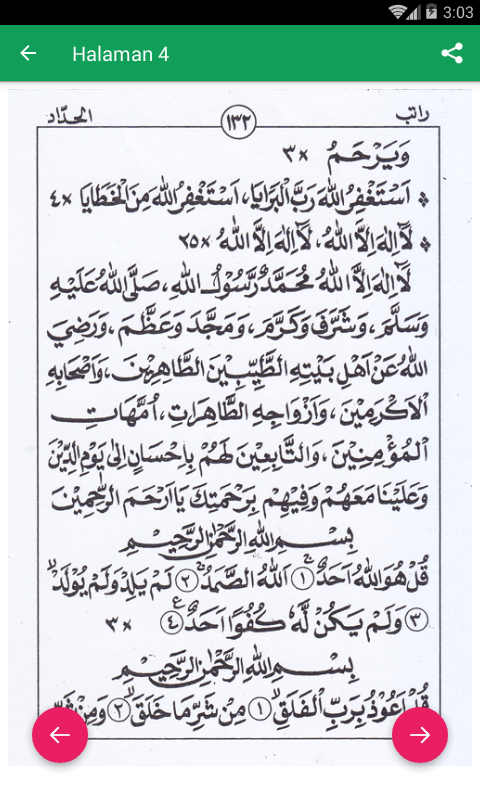 3:03
Halaman 4
راتب ١٣٢ الحدّاد
وَيَرْحَمُ ×٣
أَسْتَغْفِرُ اللهَ رَبَّ الْبَرَايَا، أَسْتَغْفِرُ اللهَ مِنَ الْخَطَايَا ×٤
لَآ اِلٰهَ اِلَّا اللهُ، لَآ اِلٰهَ اِلَّا اللهُ ×٢٥
لَآ اِلٰهَ اِلَّا اللهُ مُحَمَّدٌ رَّسُوْلُ اللهِ، صَلَّى اللهُ عَلَيْهِ
وَسَلَّمَ، وَشَرَّفَ وَكَرَّمَ، وَمَجَّدَ وَعَظَّمَ، وَرَضِيَ
اللهُ عَنْ اَهْلِ بَيْتِهِ الطَّيِّبِيْنَ الطَّاهِرِيْنَ، وَاَصْحَابِهِ
الْاَكْرَمِيْنَ، وَاَزْوَاجِهِ الطَّاهِرَاتِ، اُمَّهَاتِ
الْمُؤْمِنِيْنَ، وَالتَّابِعِيْنَ لَهُمْ بِاِحْسَانٍ اِلٰى يَوْمِ الدِّيْنِ
وَعَلَيْنَا مَعَهُمْ وَفِيْهِمْ بِرَحْمَتِكَ يَا اَرْحَمَ الرَّاحِمِيْنَ
بِسْمِ اللهِ الرَّحْمٰنِ الرَّحِيْمِ
قُلْ هُوَ اللهُ اَحَدٌ ۚ ١ اَللهُ الصَّمَدُ ۚ ٢ لَمْ يَلِدْ وَلَمْ يُوْلَدْ ۙ
٣ وَلَمْ يَكُنْ لَّهٗ كُفُوًا اَحَدٌ ࣖ ٤ ×٣
بِسْمِ اللهِ الرَّحْمٰنِ الرَّحِيْمِ
قُلْ اَعُوْذُ بِرَبِّ الْفَلَقِ ۙ ١ مِنْ شَرِّ مَا خَلَقَ ۙ ٢ وَمِنْ شَرِّ